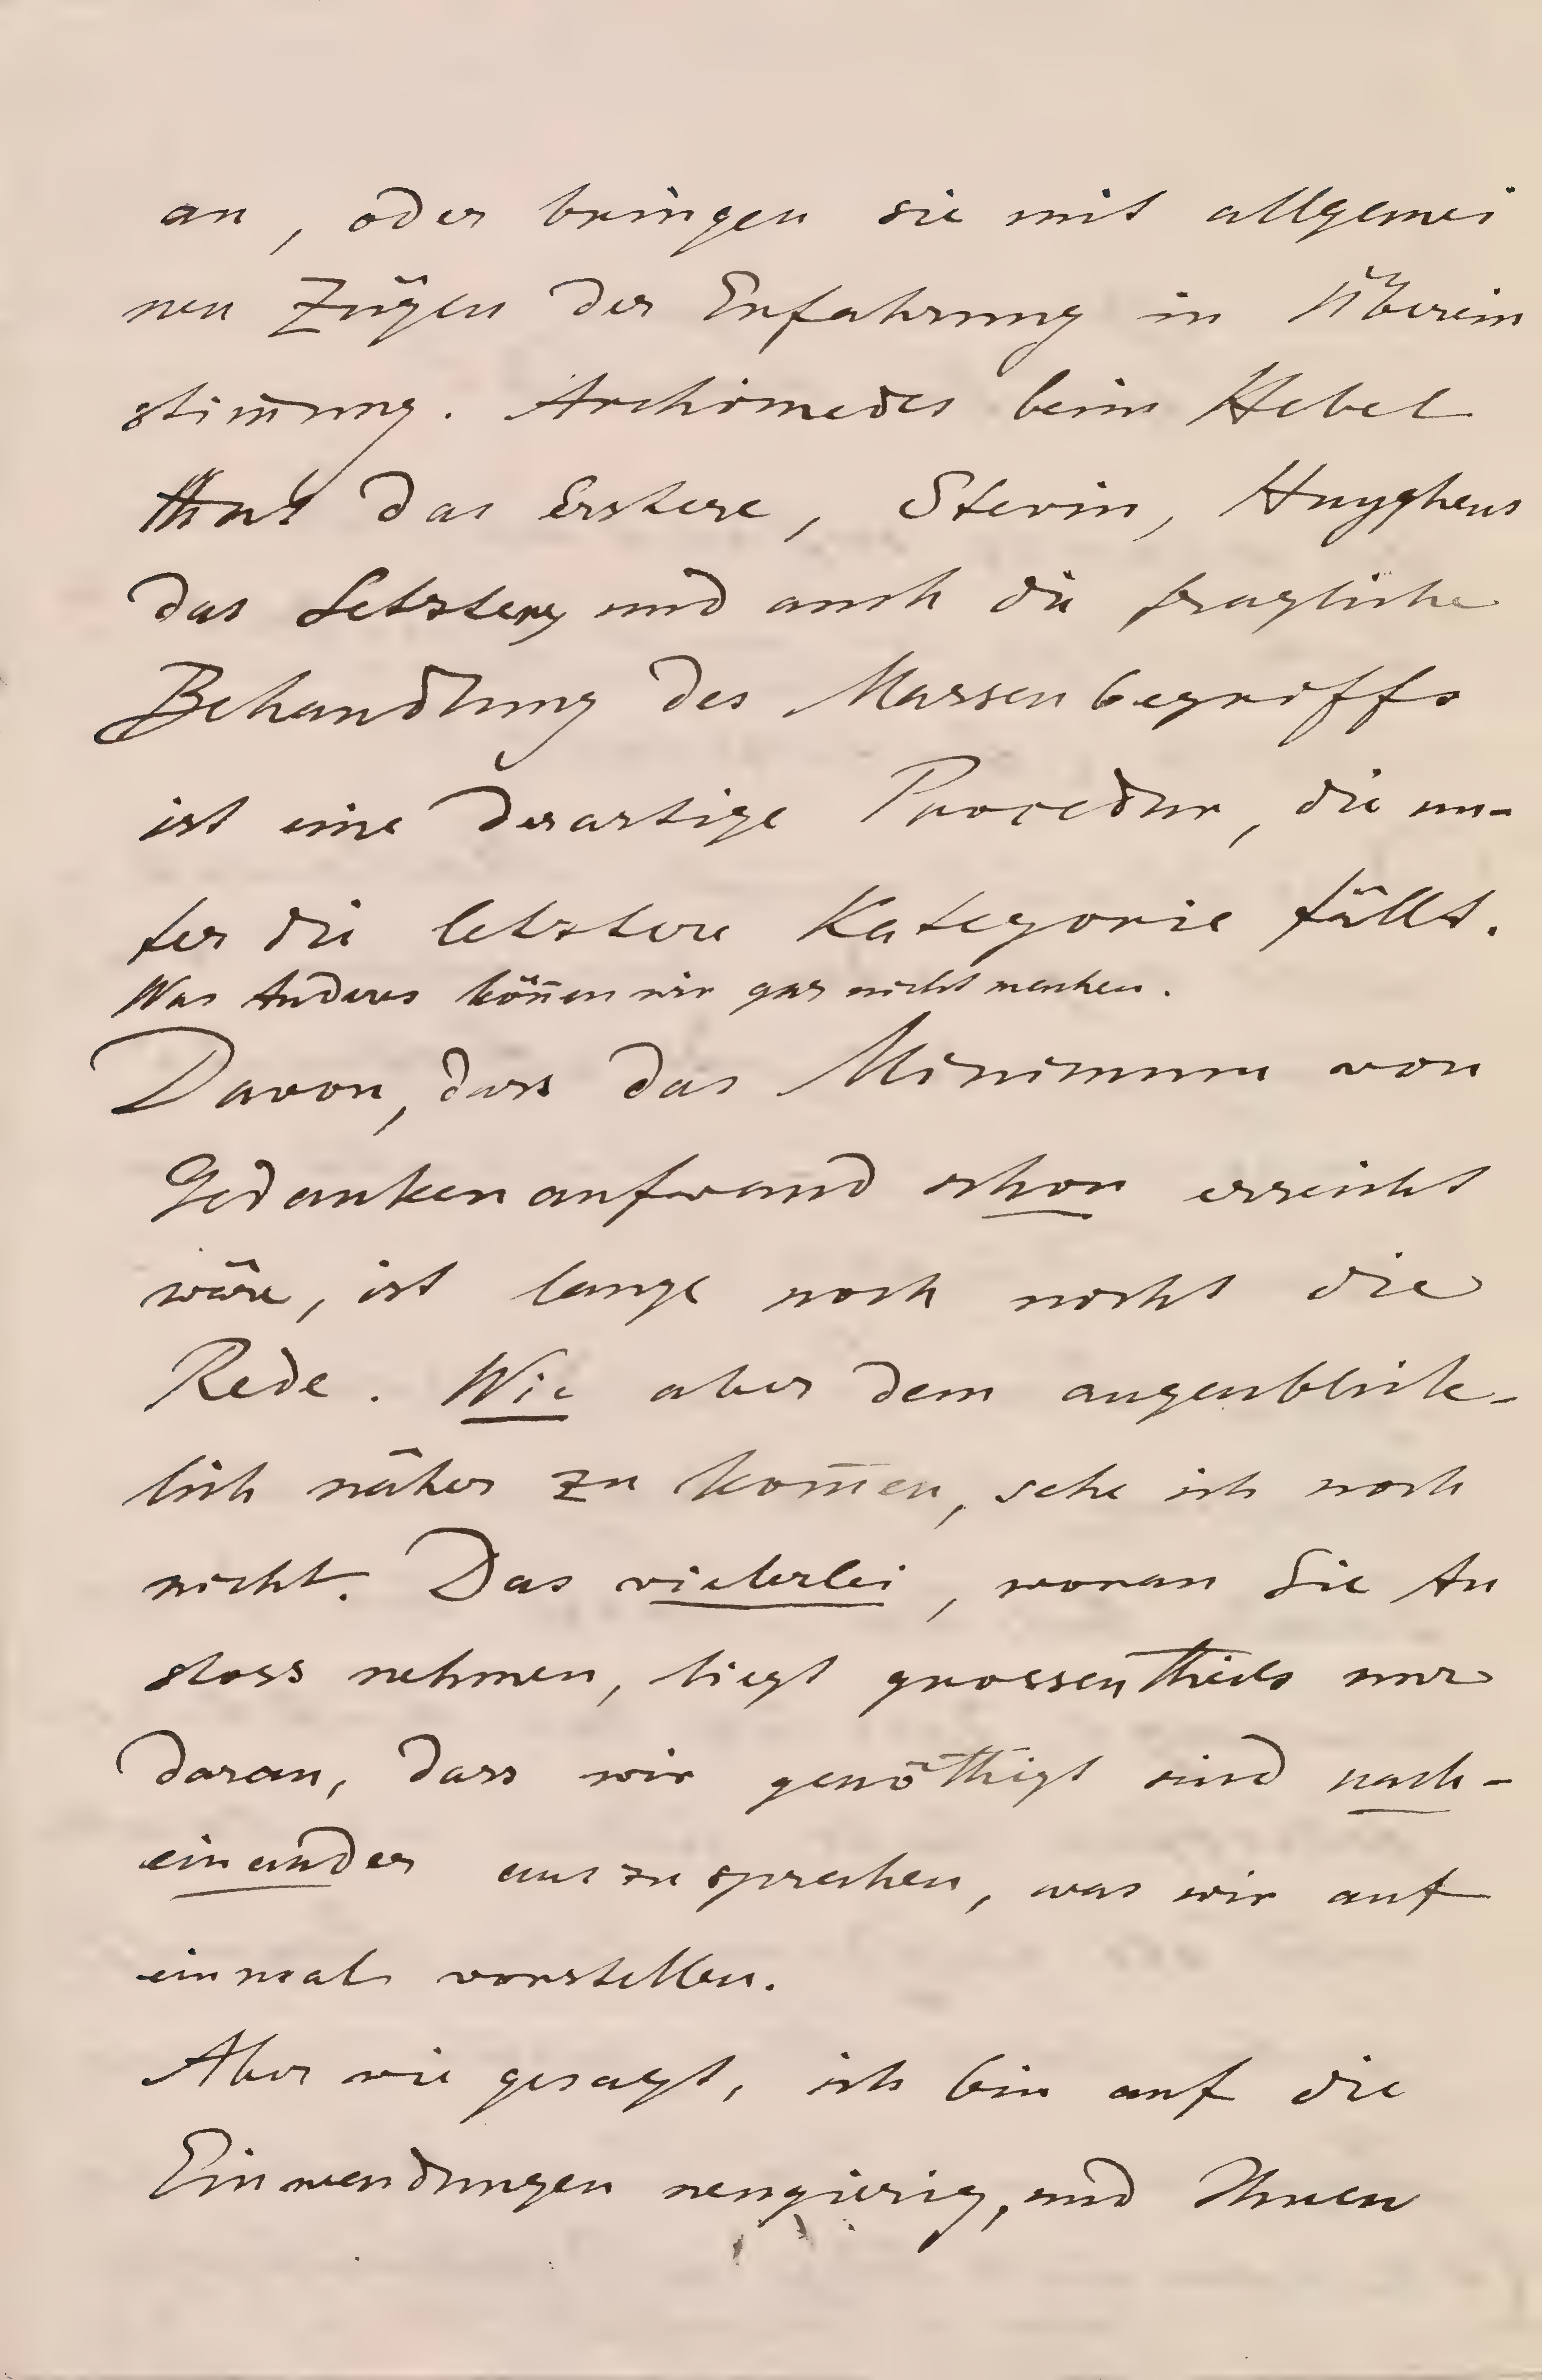 an, oder bringen sie mit allgemei
nen Zügen der Erfahrung in Überein
stim̅ung. Archimedes beim Hebel
thut das Erstere, Stevin, Huyghens
das Letztere, und auch die fragliche
Behandlung des Massenbegriffs
ist eine derartige Procedur, die un-
ter die letztere Kategorie fällt.
Was Anderes kön̅en wir gar nicht machen.
Davon, dass das Minimum von
Gedankenaufwand schon erreicht
wäre, ist lange noch nicht die
Rede. Wie aber dem augenblick-
lich näher zu kom̅en, sehe ich noch
nicht. Das vielerlei, woran Sie An
stoss nehmen, liegt grossentheils nur
daran, dass wir genöthigt sind nach-
einander auszusprechen, was wir auf
einmal vorstellen.
Aber wie gesagt, ich bin auf die
Einwendungen neugierig, und Ihnen